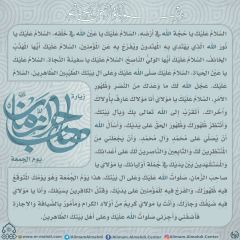 السَّلامُ عَلَيْكَ يا حُجَّةَ اللهِ في أرْضِهِ، السَّلامُ عَلَيْكَ يا عَيْنَ اللهِ في خَلْقِهِ، السَّلامُ عَلَيْكَ يا
نُورَ اللهِ الَّذي يَهْتَدي بِهِ المُهْتَدونَ ويُفَرَّجُ بِهِ عَنِ المُؤْمِنينَ، السَّلامُ عَلَيْكَ أيُّها المُهَذَّبُ
الخائِفُ، السَّلامُ عَلَيْكَ أيُّها الوَلِيُّ النّاصِحُ، السَّلامُ عَلَيْكَ يا سَفينَةَ النَّجاةِ، السَّلامُ عَلَيْكَ
يا عَيْنَ الحَياةِ، السَّلامُ عَلَيْكَ صَلّى اللهُ عَلَيْكَ وعَلى آلِ بَيْتِكَ الطَّيِّبينَ الطّاهِرينَ، السَّلامُ
عَلَيْكَ عَجَّلَ اللهُ لَكَ ما وَعَدَكَ مِنَ النَّصْرِ وظُهورِ
الأمْرِ، السَّلامُ عَلَيْكَ يا مَوْلايَ أنا مَوْلاكَ عارِفٌ بِأولاكَ
وأُخْراكَ، أتَقَرَّبُ إلى اللهِ تَعالى بِكَ وبِآلِ بَيْتِكَ
وأنْتَظِرُ ظُهورَكَ وظُهورَ الحَقِّ عَلى يَدَيْكَ، وأسْألُ اللهَ
أنْ يُصَلِّيَ عَلى مُحَمَّدٍ وآلِ مُحَمَّدٍ، وأنْ يَجْعَلَني مِنَ
المُنْتَظِرينَ لَكَ والتّابِعينَ والنّاصِرينَ لَكَ عَلى أعْدائِكَ
والمُسْتَشْهَدينَ بَيْنَ يَدَيْكَ في جُمْلَةِ أوْلِيائِكَ، يا مَوْلايَ يا
صاحِبَ الزَّمانِ، صَلَواتُ اللهِ عَلَيْكَ وعَلى آلِ بَيْتِكَ، هذا يَوْمُ الجُمُعَةِ وهُوَ يَوْمُكَ المُتَوَقَّعُ
فيهِ ظُهورُكَ، والفَرَجُ فيهِ لِلْمُؤْمِنينَ عَلى يَدَيْكَ، وقَتْلُ الكافِرينَ بِسَيْفِكَ، وأنا يا مَوْلايَ
فيهِ ضَيْفُكَ وجارُكَ، وأنْتَ يا مَوْلايَ كَريمٌ مِنْ أوْلادِ الكِرامِ ومَأْمورٌ بِالضِّيافَةِ والإجارَةِ
فَأضِفْني وأجِرْني صَلَواتُ اللهِ عَلَيْكَ وعَلى أهْلِ بَيْتِكَ الطّاهِرينَ.
زيارة
صاحب الزمان
يوم الجمعة